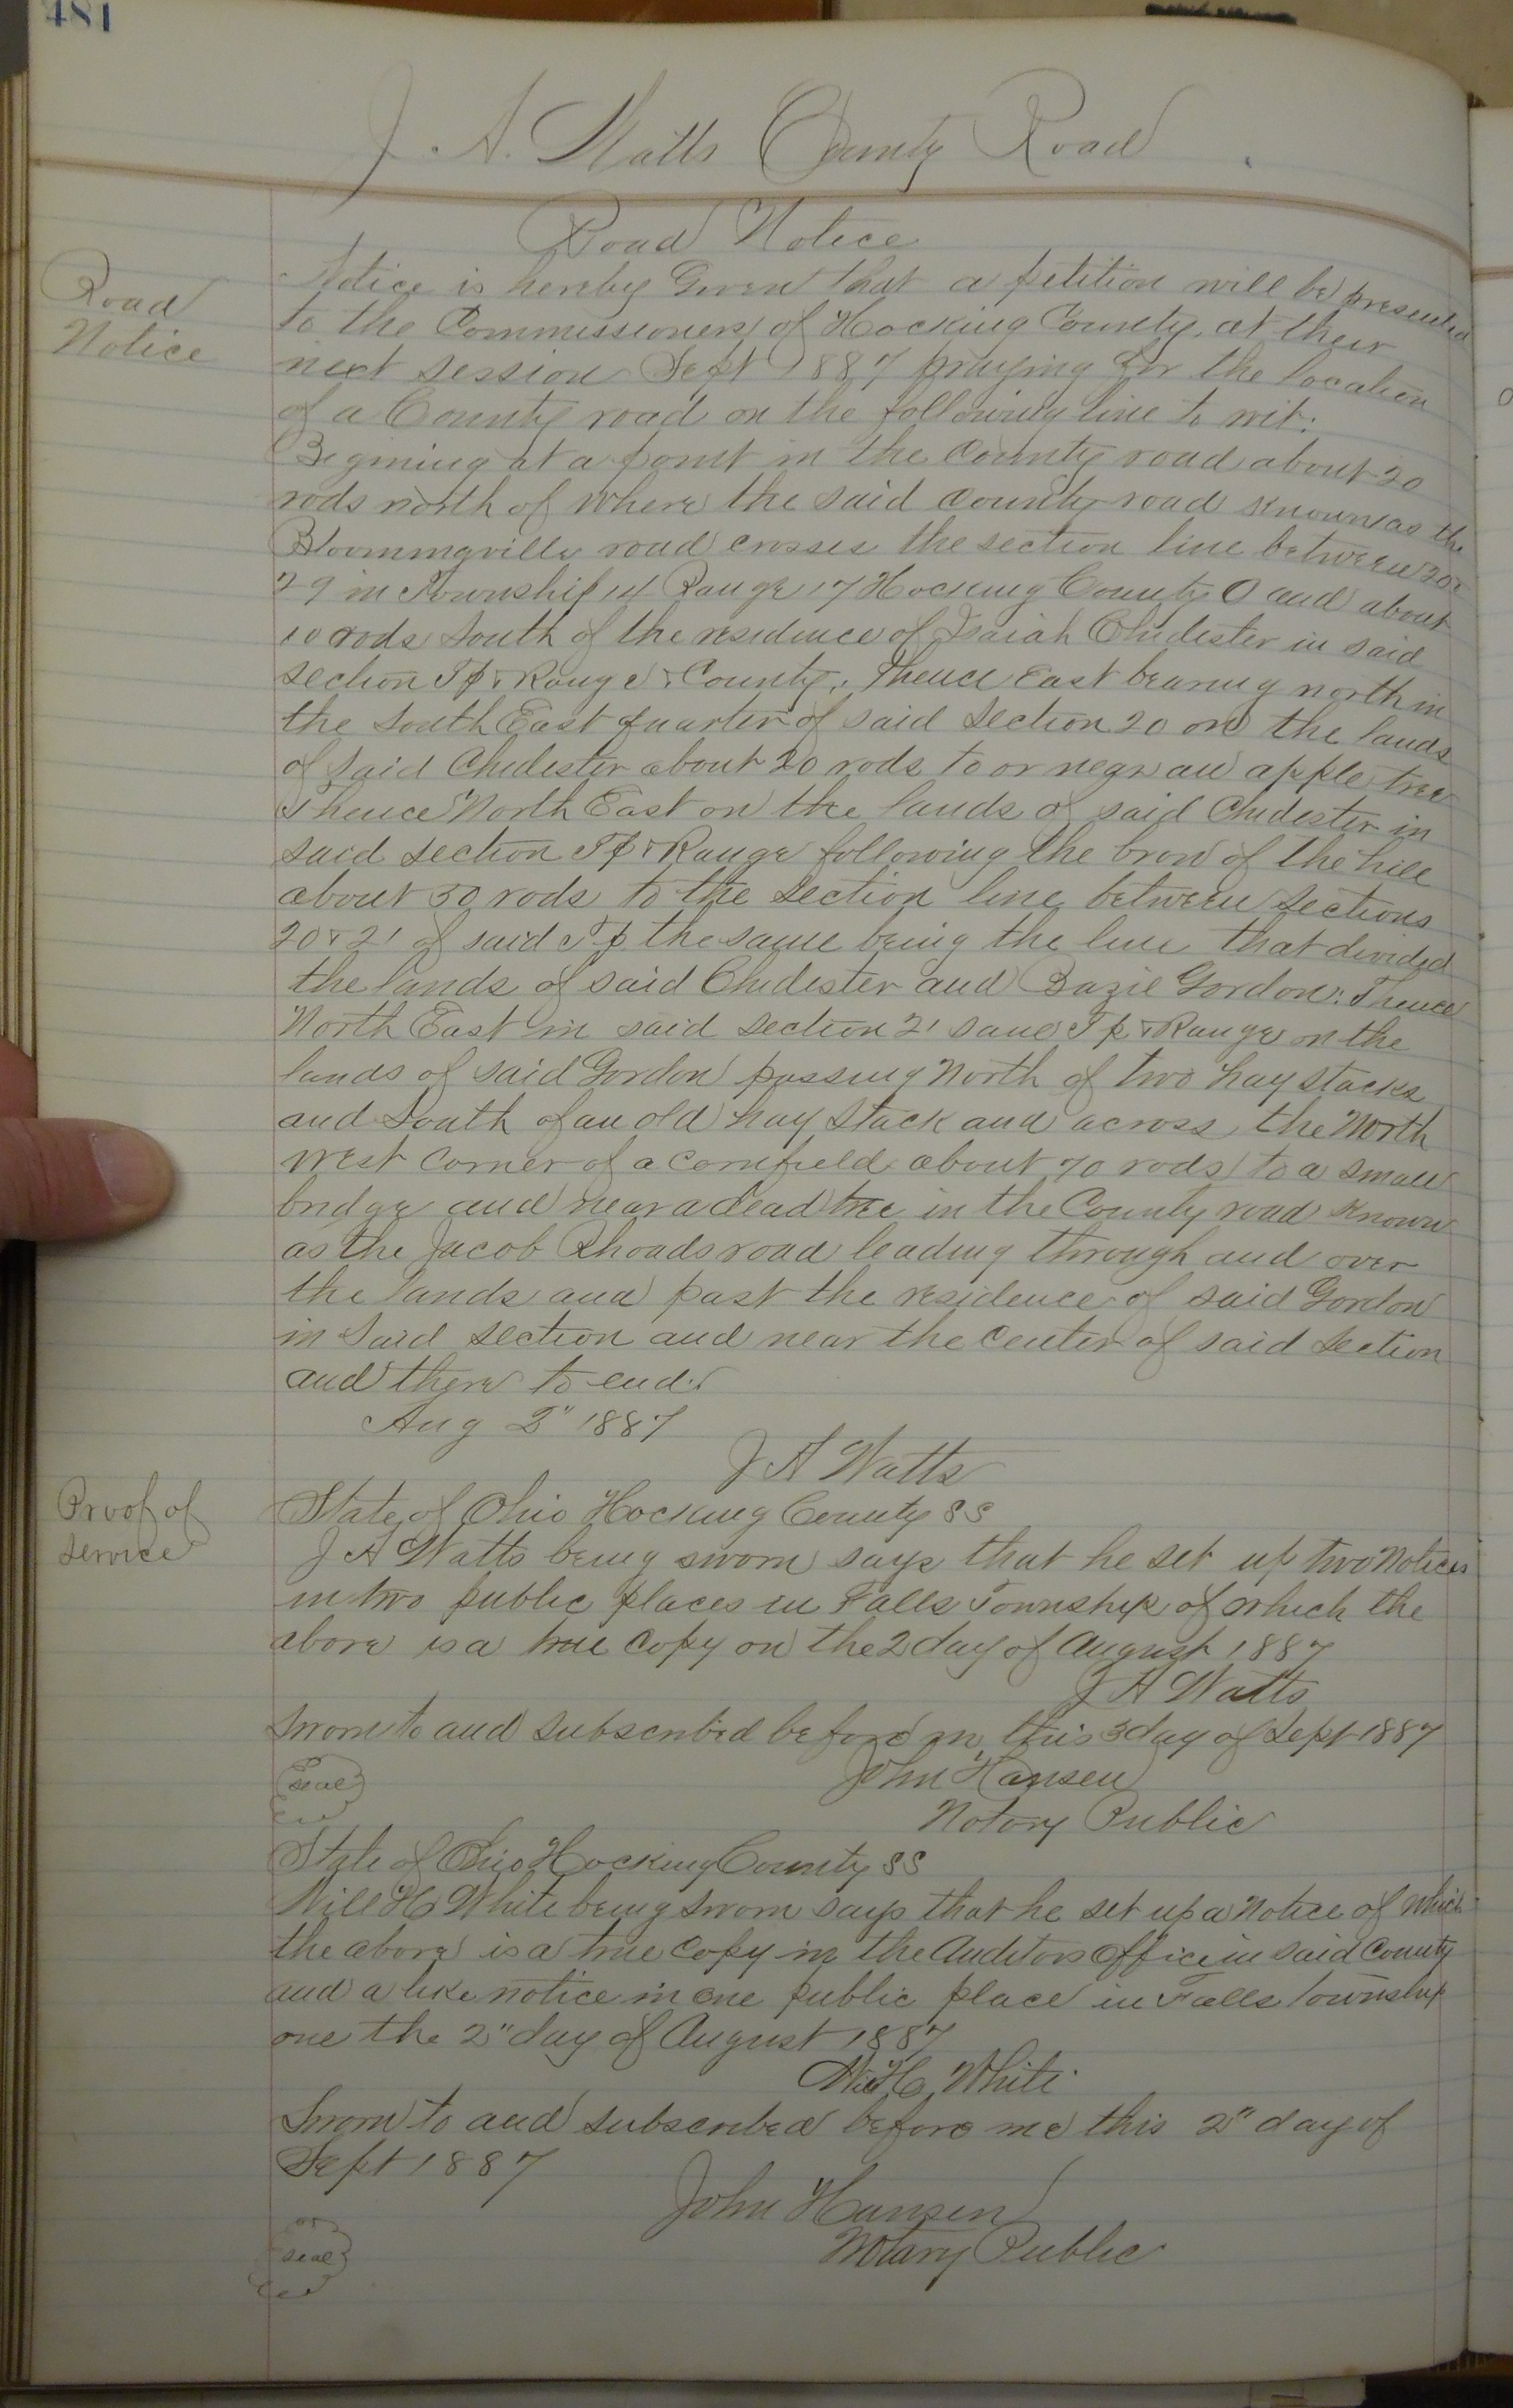 481
J. A. Watts County Road
Road Notice
Road
Notice
Notice is hereby Given that a petition will be presented
to the Commissioners of Hocking County, at their
next session Sept 1887 praying for the location
of a County road on the following line to wit:
Begining at a point in the County road about 20
rods north of where the said County road known as the
Bloommgville road crosses the section line between 20 &
29 in Township 14 Range 17 Hocking County O and about
10 rods South of the residence of Isaiah Chidester in said
section Tp & Range & County, Thence East bearing north in
the South East quarter of said section 20 on the lands
of said Chidester about 20 rods to or near an apple tree
Thence North East on the lands of said Chidester in
said section Tp & Range following the brow of the hill
about 50 rods to the section line between sections
20 & 21 of said Tp the same being the line that divided
the lands of said Chidester and Bazil Gordon: Thence
North East in said section 21 same Tp & Range on the
lands of said Gordon passing North of two hay stacks
and South of an old hay stack and across the North
west corner of a cornfield about 70 rods to a small
bridge and near a dead tree in the County road known
as the Jacob Rhoads road leading through and over
the lands and past the residence of said Gordon
in said section and near the center of said section
and there to end.
Aug 2" 1887
J A Watts
Proof of
service
State of Ohio Hocking County SS
J A Watts being sworn says that he set up two Notices
in two public places in Falls Township of which the
above is a true copy on the 2 day of August 1887
J A Watts
Sworn to and subscribed before m this 3 day of Sept 1887
seal
John Hansen
Notary Public
State of Ohio Hocking County SS
Will H White being sworn says that he set up a Notice of which
the above is a true copy in the Auditors office in said County
and a like notice in one public place in Falls Township
one the 2" day of August 1887
Will H White
Sworn to and subscribed before me this 2" day of
Sept 1887
John Hansen
seal
Notary Public